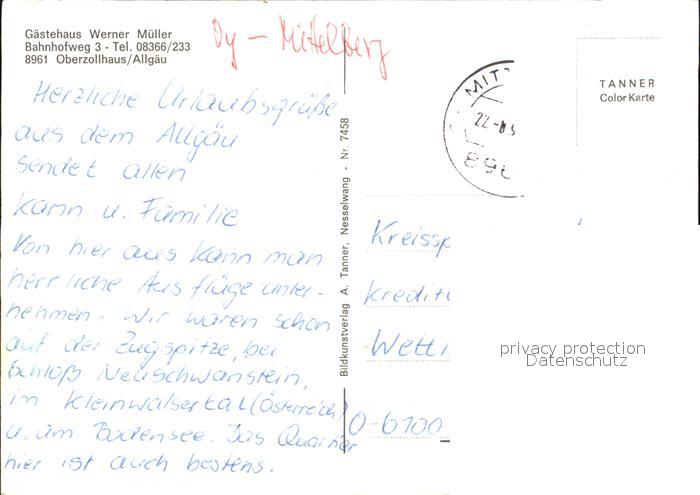 Gästehaus Werner Müller
Bahnhofweg 3 - Tel. 08366/233
8961 Oberzollhaus/Allgäu
Oy - Mittelberg
TANNER
Color Karte
MITT
22.-
896
Herzliche Urlaubsgrüße
aus dem Allgäu
sendet allen
Kann u. Familie
Von hier aus kann man
herrliche Ausflüge unter-
nehmen. Wir waren schon
auf der Zugspitze, bei
Schloß Neuschwanstein,
im Kleinwalsertal (Österreich)
u. am Bodensee. Das Quartier
hier ist auch bestens.
Bildkunstverlag A. Tanner, Nesselwang - Nr 7458
Kreissp
krediti
Wetti
O-6100
privacy protection
Datenschutz